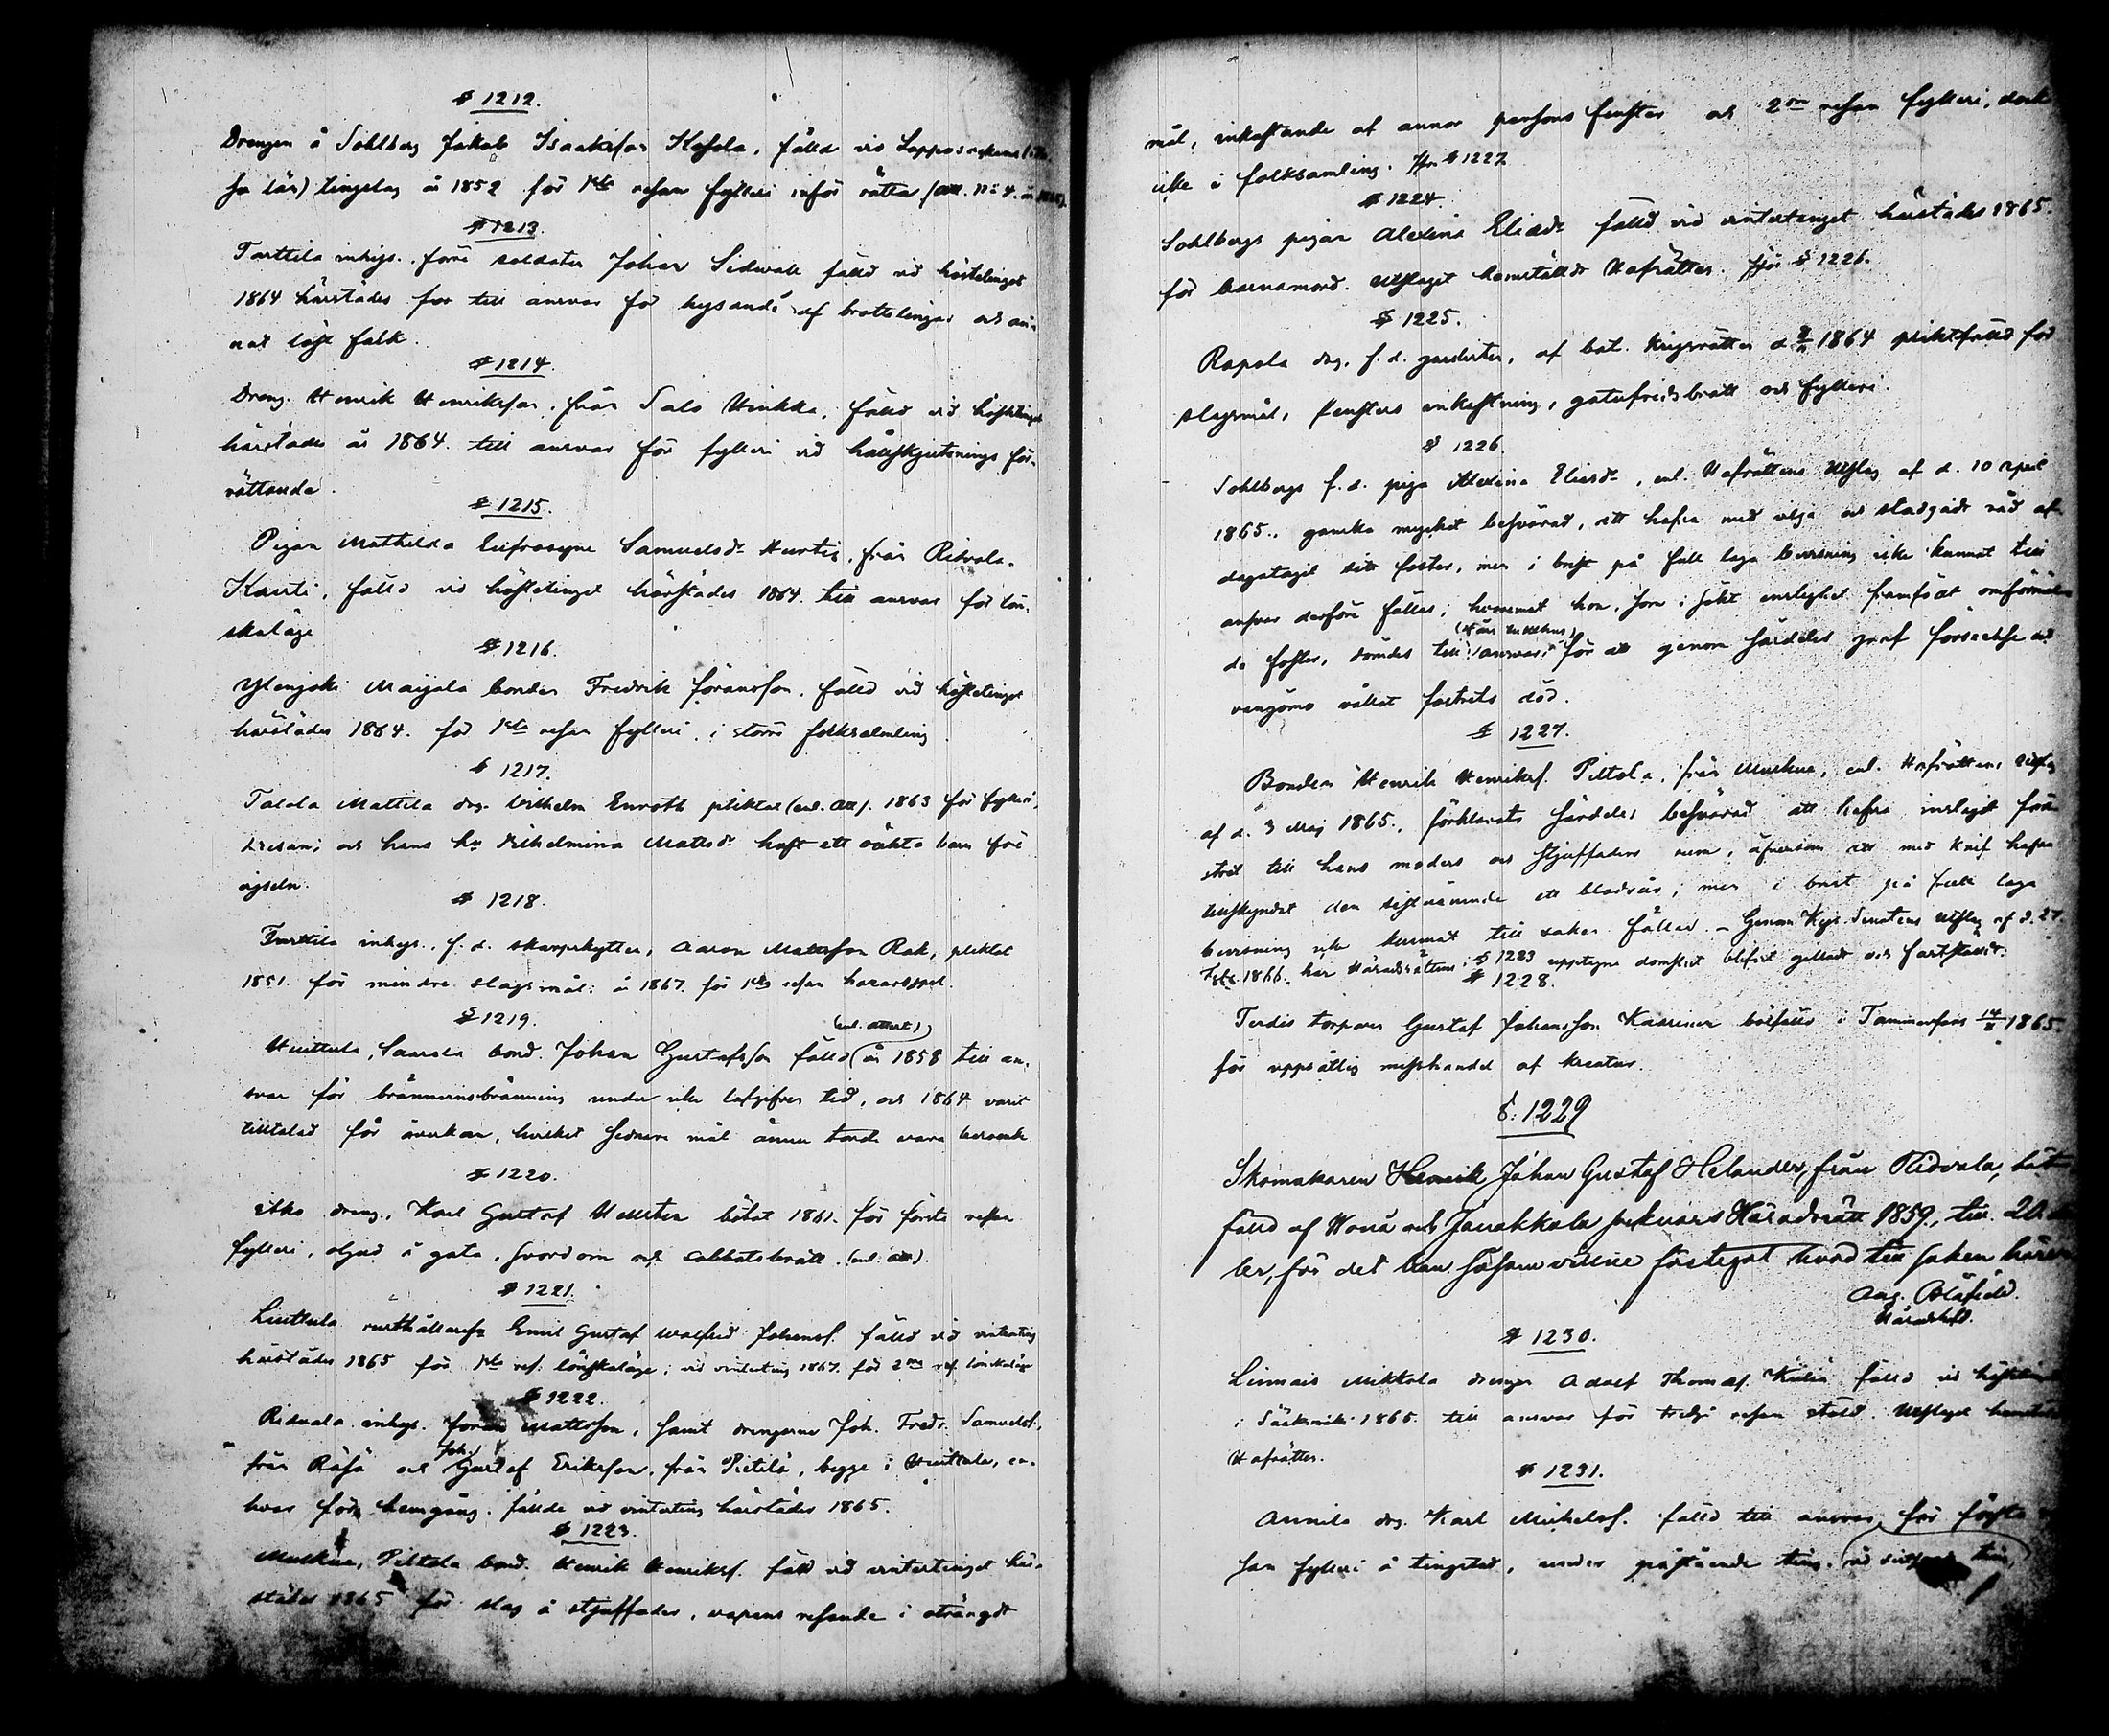 § 1212.
Drengen å Sohlberg Jakob Isaaksson Kasola, fälld vid Lappo sockens
tingslag år 1852 för 1sta resan fylleri inför rätta (att. No 4.
§ 1213.
Turttila inhys. förre soldaten Johan Sidwall fälld vid höstetinget
1864 härstädes för till ansvar för hysande af brottslingar och an-
nat löst folk.
§ 1214.
Dreng. Henrik Henriksson, från Salo Uinkka, fälld vid hösttinget
härstädes år 1864. till ansvar för fylleri vid hållskjutsnings för-
rättande.
§ 1215.
Pigan Mathilda Eufrosyne Samuelsdr Hurtig, från Ridvala.
Kauti, fälld vid höstetinget härstädes 1864. till ansvar för lön-
skaläge
§ 1216.
Ylenjoki Maijala bonden Fredrik Göransson, fälld vid höstetinget
härstädes 1864. för 1sta resan fylleri i större folksamling.
§ 1217.
Talala Mattila drg. Wilhelm Enroth pliktat (enl. att). 1863 för fylleri,
och hans hu Wilhelmina Matsdr haft ett oäkta barn före
vigseln.
§ 1218.
Turttila inhys. f. d. skarpskytten, Aaron Mattsson Rak, pliktat
1851. för mindre slagsmål: år 1867. för 1sta resan hazardspel.
§ 1219.
(enl. attest)
Huittula, Saarela bond. Johan Gustafsson fälld år 1858 till an-
svar för bränvinsbränning under icke lofgifven tid, och 1864 varit
tilltalad för åverkan, hvilket sednare mål ännu torde vara beroende.
§ 1220.
dreng. Karl Gustaf bötat 1861. för första resan
fylleri, oljud å gata, svordom och sabbatsbrott. (enl. att).
§ 1221.
Liuttula rusthållaresn Emil Gustaf Walfrid Johanss. fälld vid vinterting
härstädes 1865 för 1sta res. lönskaläge; vid vinterting 1867. för 2dra res. lönskaläge
§ 1222.
Ridvala inhys. Johan Mattsson, samt drengarne Joh. Fredr. Samuelss.
från Räsä och Joh. Gustaf Eriksson, från Pietilä, begge i Huittula, en-
hvar för hemgång. fällde vid vinterting härstädes 1865.
§ 1223.
Muskua, Piltola bond. Henrik Henrikss. fälld vid vintertinget här-
städes 1865 för slag å stjuffader, vapens resande i oträngdt
mål, inkastande af annor persons fenster och 2dra resan fylleri, dock
icke i folksamling. Jfr. § 1227.
§ 1224.
Sohlbergs pigan Alexina Eliædr fälld vid vintertinget härstädes 1865.
för barnamord. Utslaget hemställdt Hofrätten. Jför § 1226.
§ 1225.
Rapola drg. f. d. gardisten, af bat. krigsrätten d 1864 pliktfälld för
slagsmål, fensters inkastning, gatufridsbrott och fylleri.
§ 1226.
Sohlbergs f. d. piga Alexina Eliasdr, enl. Hofrättens Utslag af d. 10 April
1865., ganska mycket besvärad, att hafva med vilja och stadgadt råd af-
dagatagit sitt foster, men i brist på full laga bevisning icke kunnat till
ansvar derföre fällas; hvaremot hon, som i sökt enslighet framfödt omförmäl-
da foster, dömdes till ansvar, för att genom särdeles grof försumelse och
vangömo vållat fostrets död.
§ 1227.
Bonden Henrik Henrikss. Piltola, från Muskua, enl. Hofrättens Utslag
af d. 3 Maj 1865., förklarats särdeles besvärad att hafva inslagit fön-
stret till hans moders och stjuffaders rum, äfvensom att med knif hafva
tillskyndat den sistnämnde ett blodsår; men i brist på full laga
bevisning icke kunnat till saken fällas. – Genom Kejs. Senatens Utslag af d. 27.
Febr. 1866. har Häradsrättens i § 1223 upptagne domslut blifvit gilladt och fastställdt.
§ 1228.
Terdis torparen Gustaf Johansson Kaarinen bötfälld i Tammerfors 1865.
för uppsåtlig misshandel af kreatur.
§: 1229
Skomakaren Henrik Johan Gustaf Helander, från Ridvala, böt-
fälld af Hausjö och Janakkala socknars Häradsrätt 1859., till 20
ler, för det han såsom vittne förtegat hvad till saken hörer
Aug. Blåfield.
Häradshöfd.
§ 1230.
Linnais Mikkola drengen Adolf Thomass. Kiiliä fälld vid höstetinget
i Sääksmäki 1865. till ansvar för tredje resan stöld. Utslaget hemställdt
Hofrätten.
§ 1231.
Annila drg. Karl Michelss. fälld till ansvar för första re-
san fylleri å tingstad, under påstående ting.